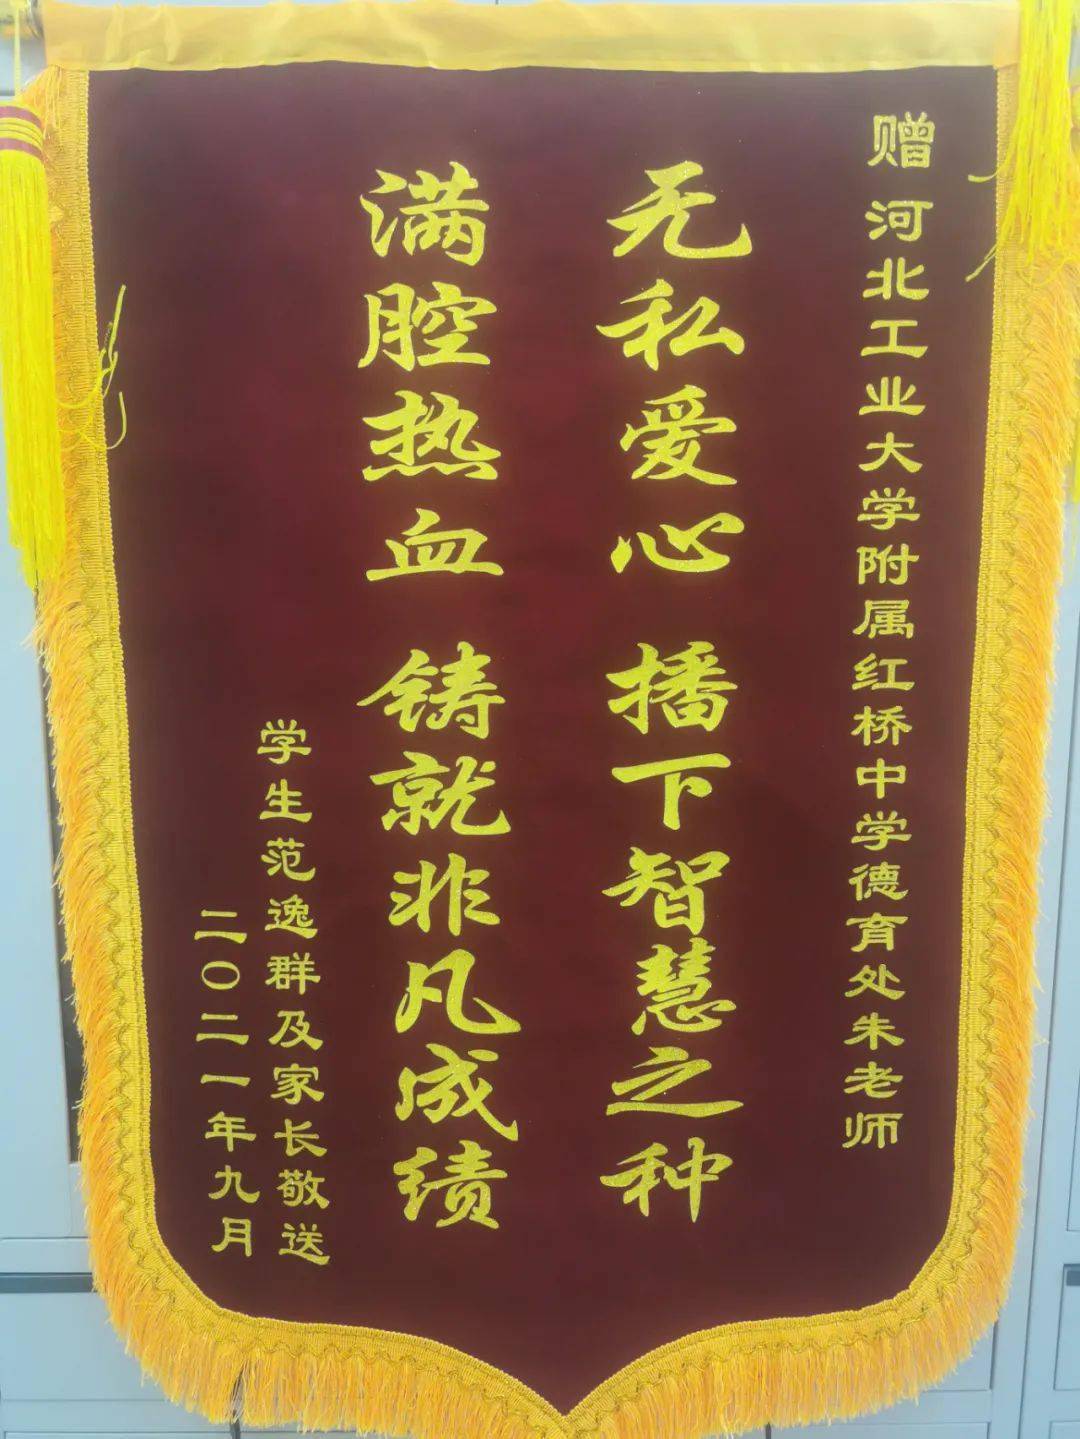 赠河北工业大学附属红桥中学德育处朱老师
无私爱心 播下智慧之种
满腔热血 铸就非凡成绩
学生范逸群及家长敬送
二〇二一年九月